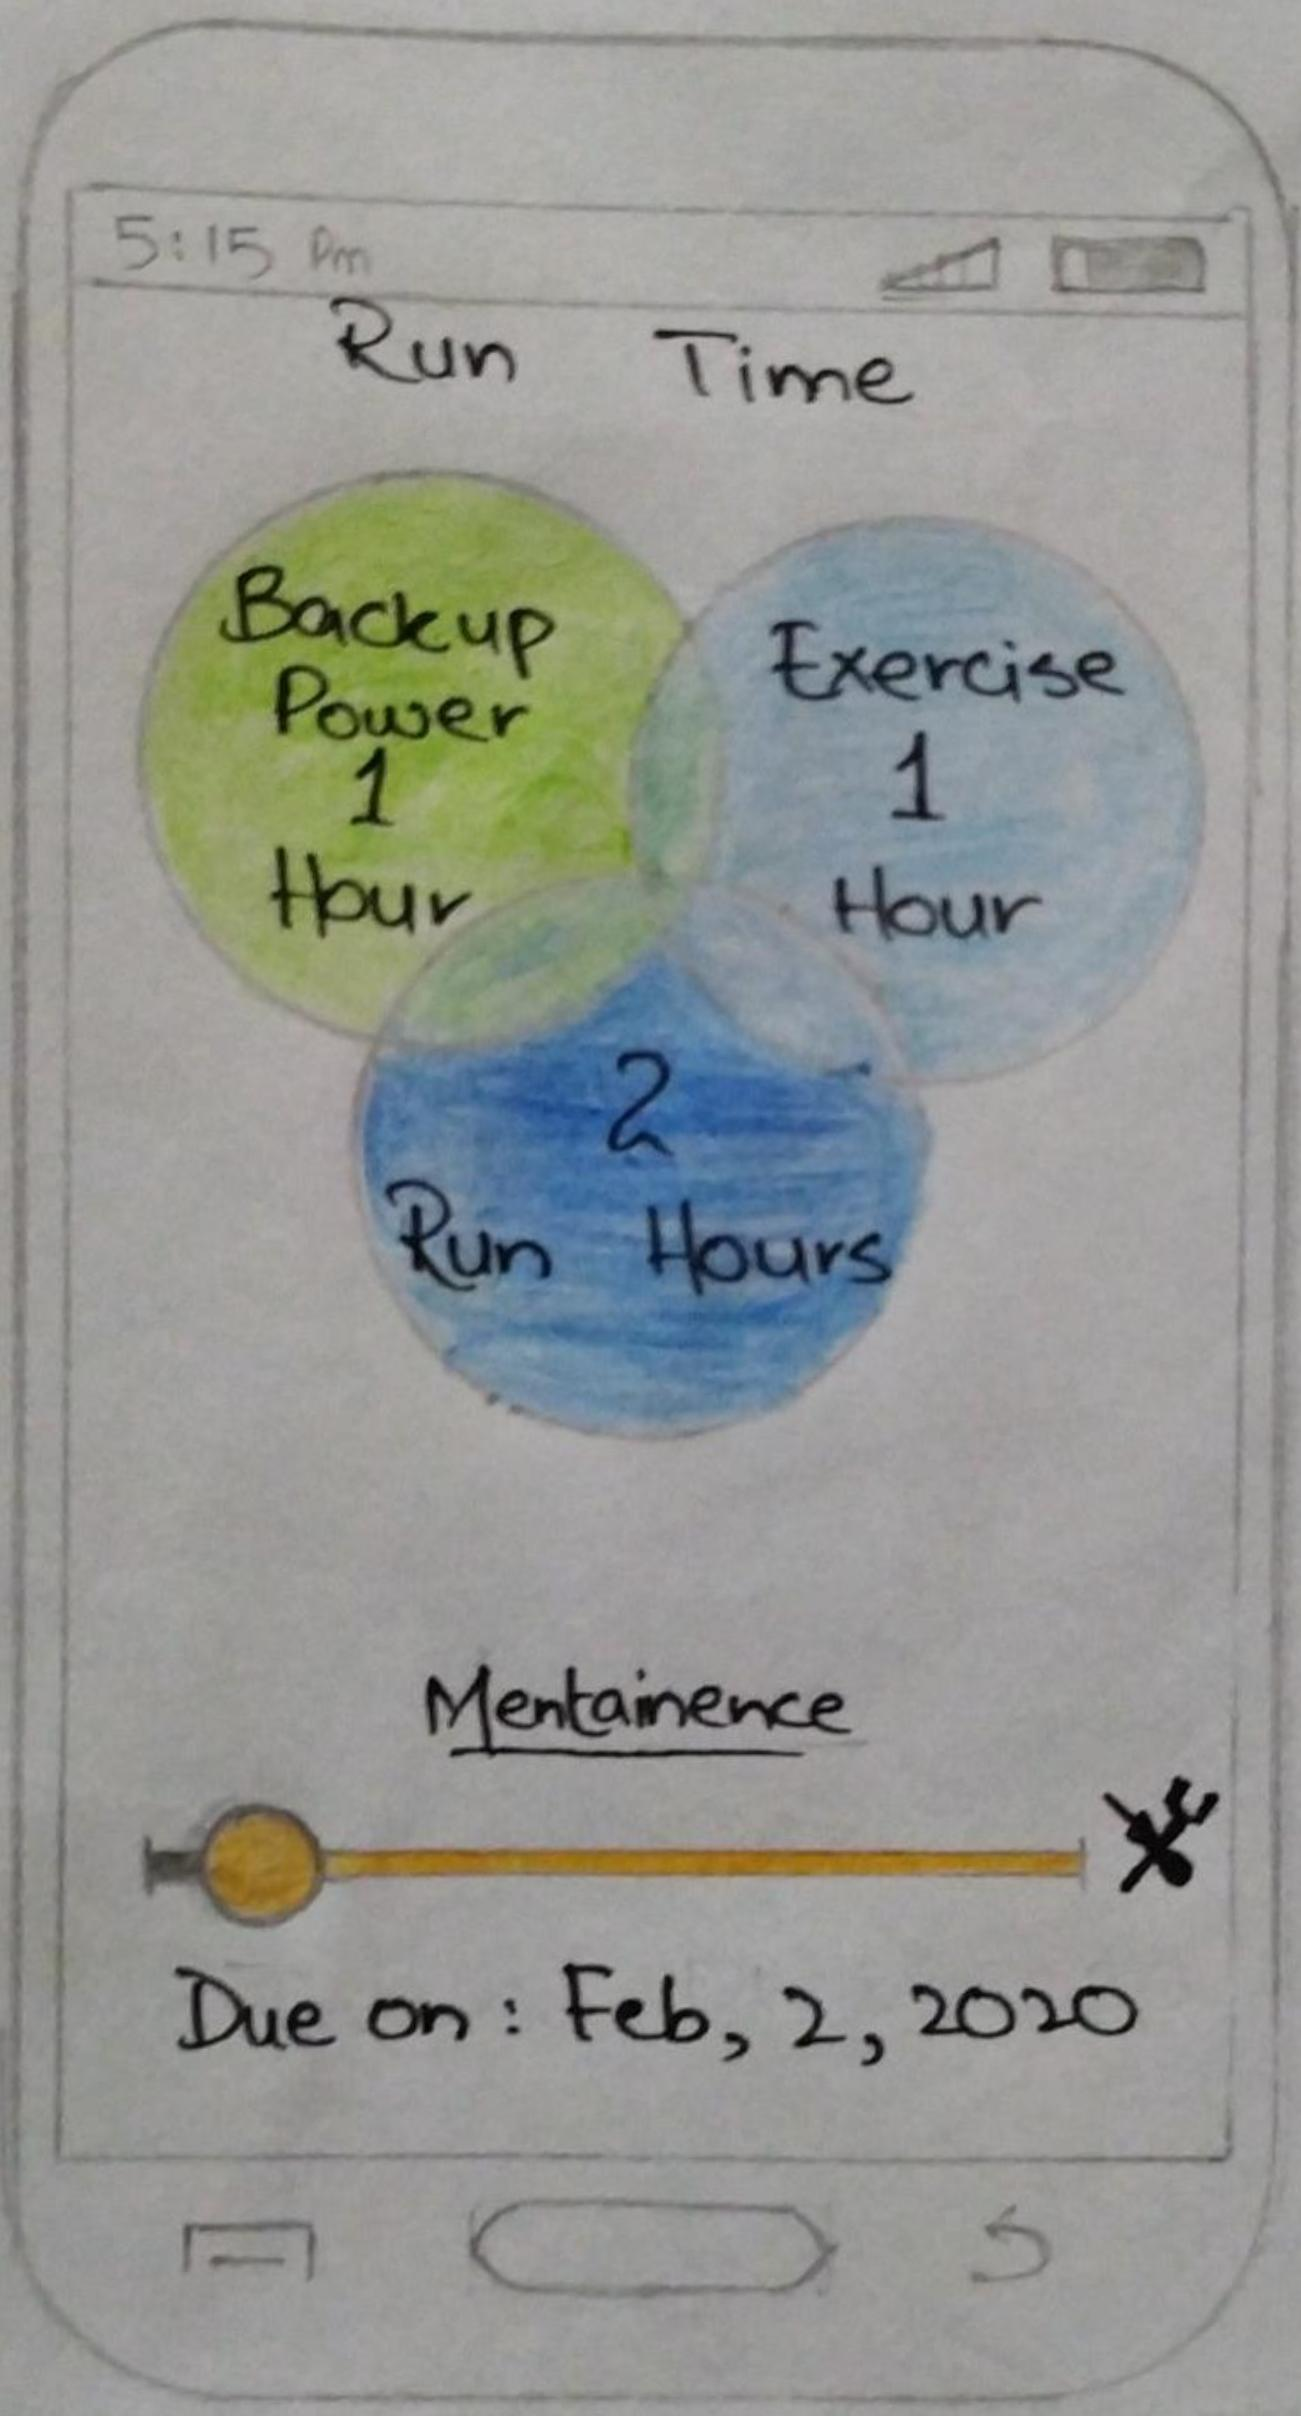 5:15 Pm
Run Time
Backup
Power
1
Hour
Exercise
1
Hour
2
Run Hours
Mentainence
Due on: Feb, 2, 2020